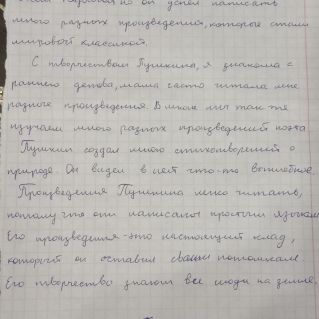 но он успел написать
много разных произведений, которые стали
мировой классикой.
С творчеством Пушкина, я знакома с
раннего детства, мама часто читала мне
разные произведения. В школе мы так же
изучаем много разных произведений поэта
Пушкин создал много стихотворений о
природе. Он видел в ней что-то волшебное.
Произведения Пушкина легко читать,
потому что они написаны простым языком.
Его произведения-это настоящий клад,
который он оставил своим потомкам.
Его творчество знают все люди на земле.